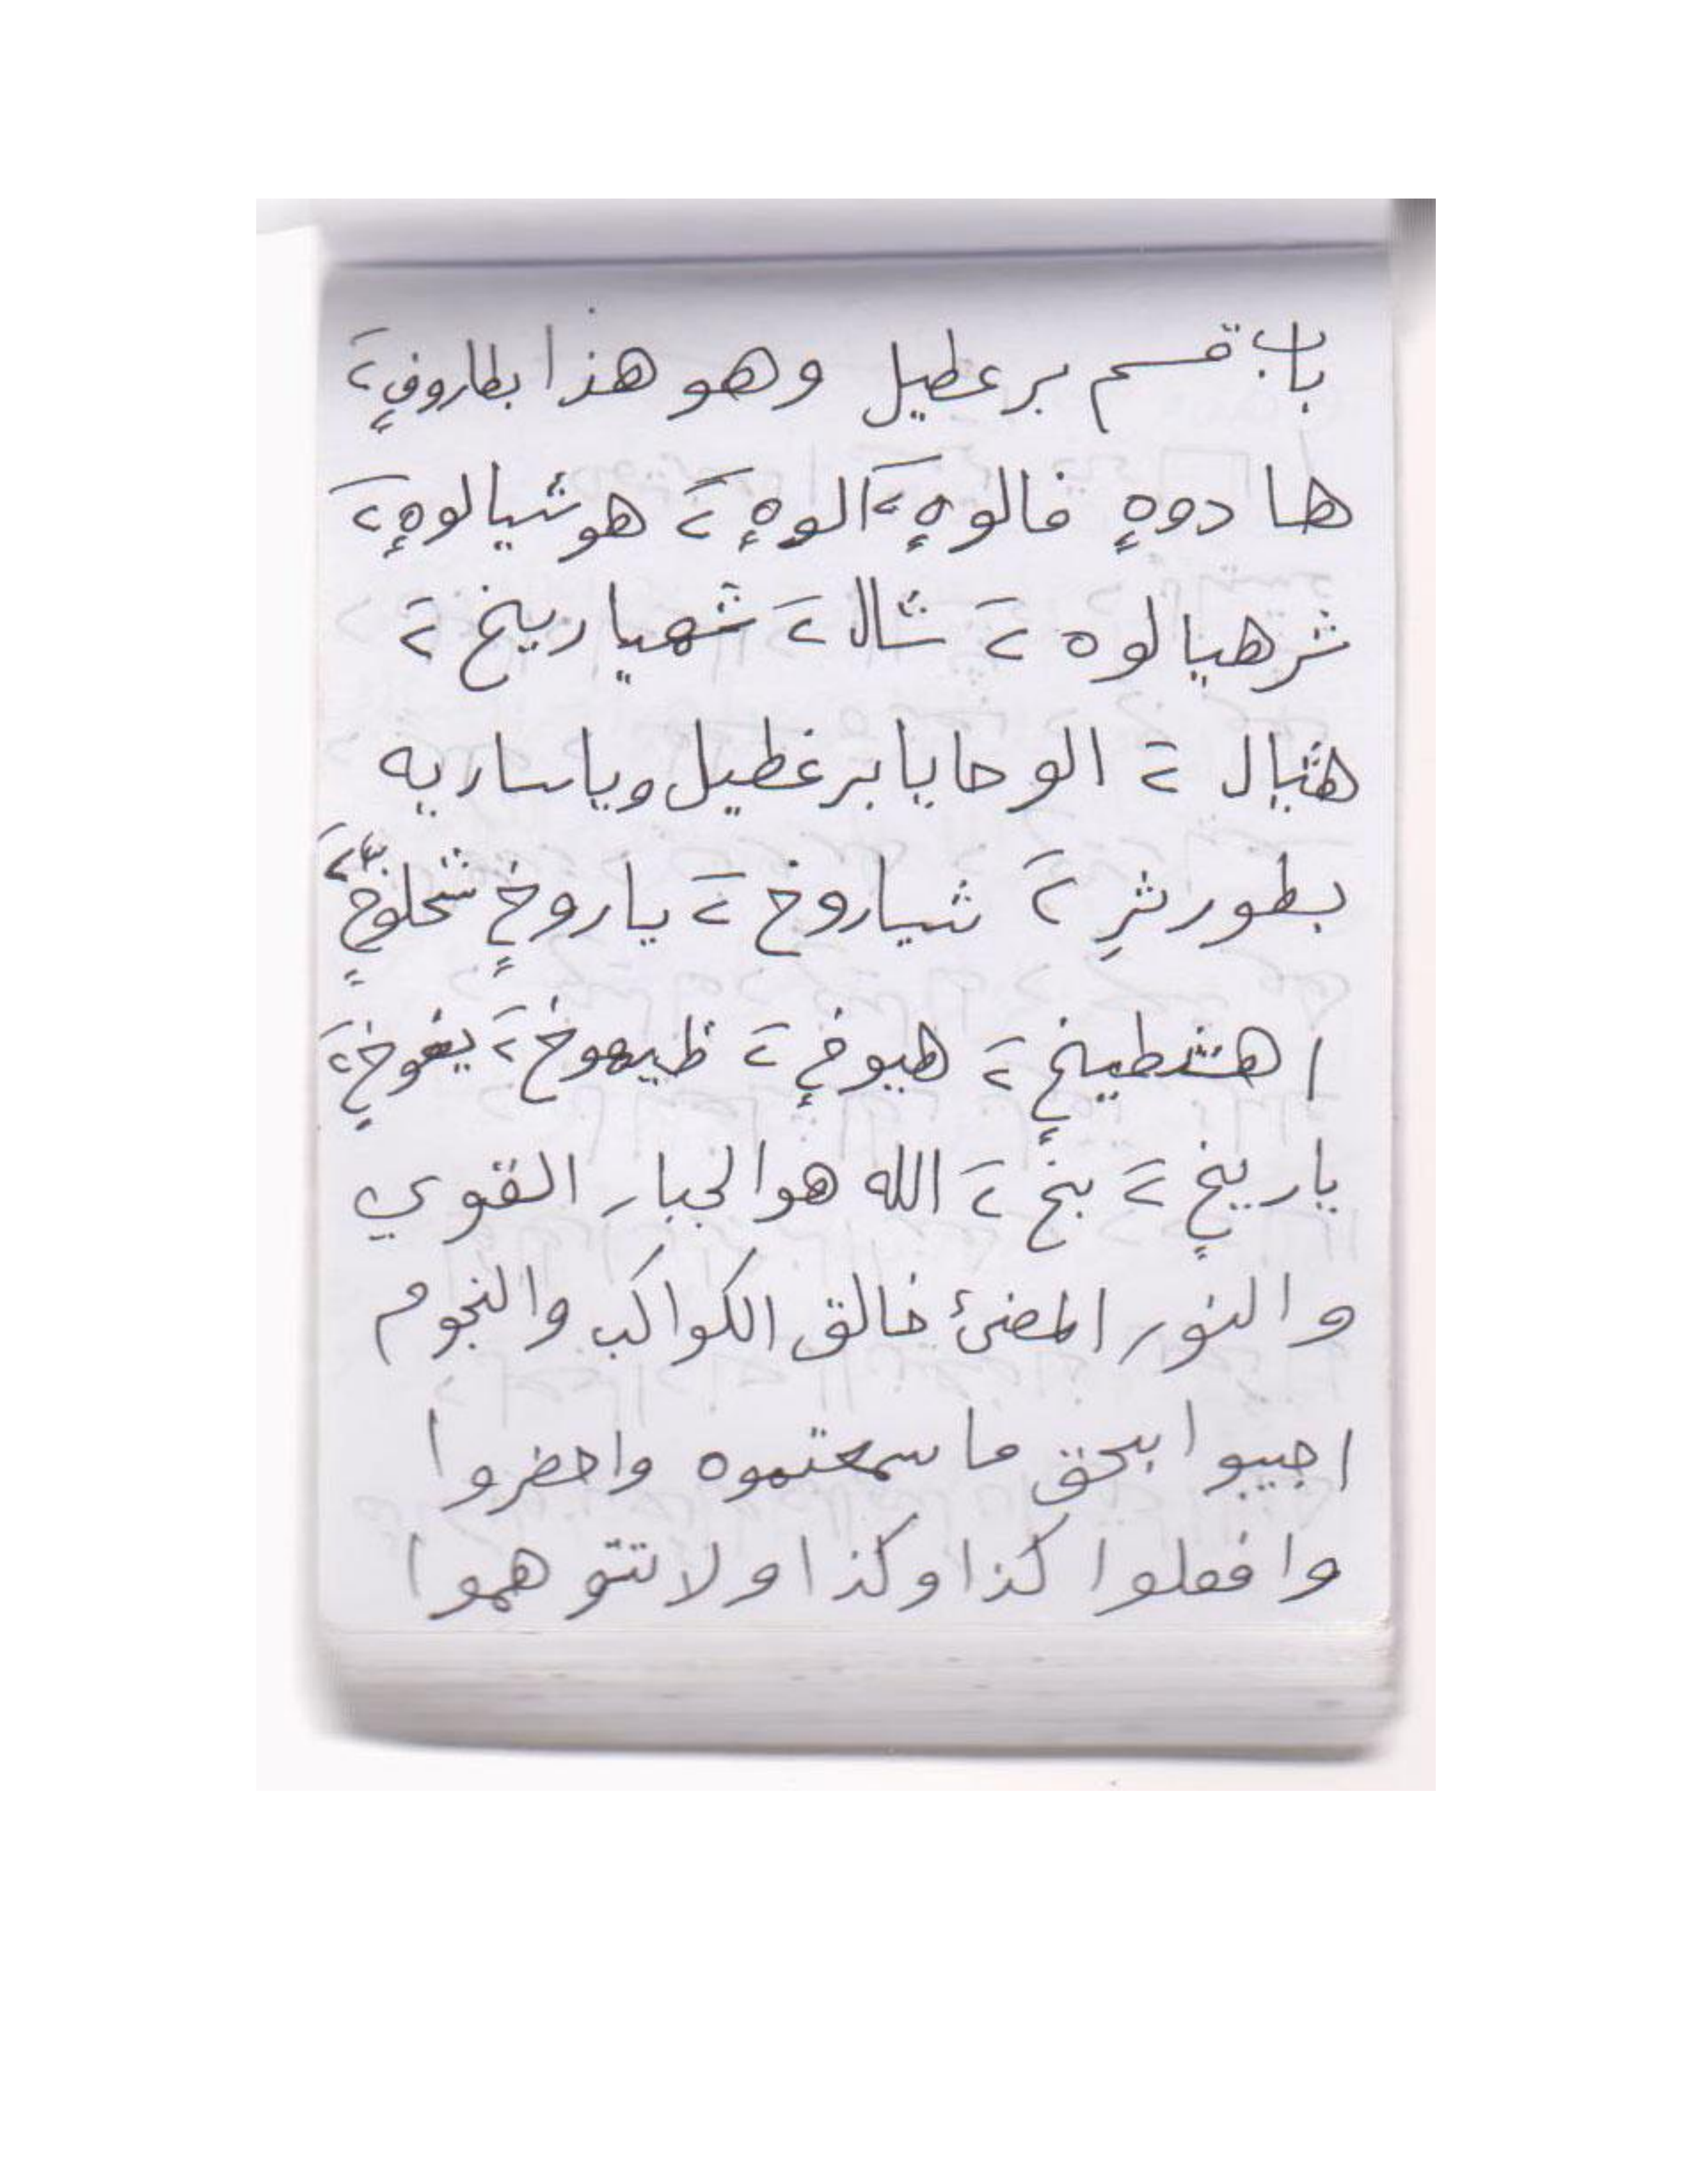 باب قسم برعطيل وهو هذا بطاروفٍ ٢
هادوهٍ فالوهٍ ٢ الوهٍ ٢ هوشيالوهٍ ٢
شرهيالوه ٢ شال ٢ شهياريخ ٢
هثيال ٢ الوحايا برغطيل وياساريه
بطورشٍ ٢ شياروخ ٢ ياروخٍ شحلوخٍ ٢
اهشطيخٍ ٢ هيوخٍ ٢ ظيهوخ ٢ يغوخٍ ٢
ياريخٍ ٢ بخ ٢ الله هو الجبار القوي
والنور المضئ خالق الكواكب والنجوم
اجيبوا بحق ما سمعتموه واحضروا
وافعلوا كذا وكذا ولا تتوهموا